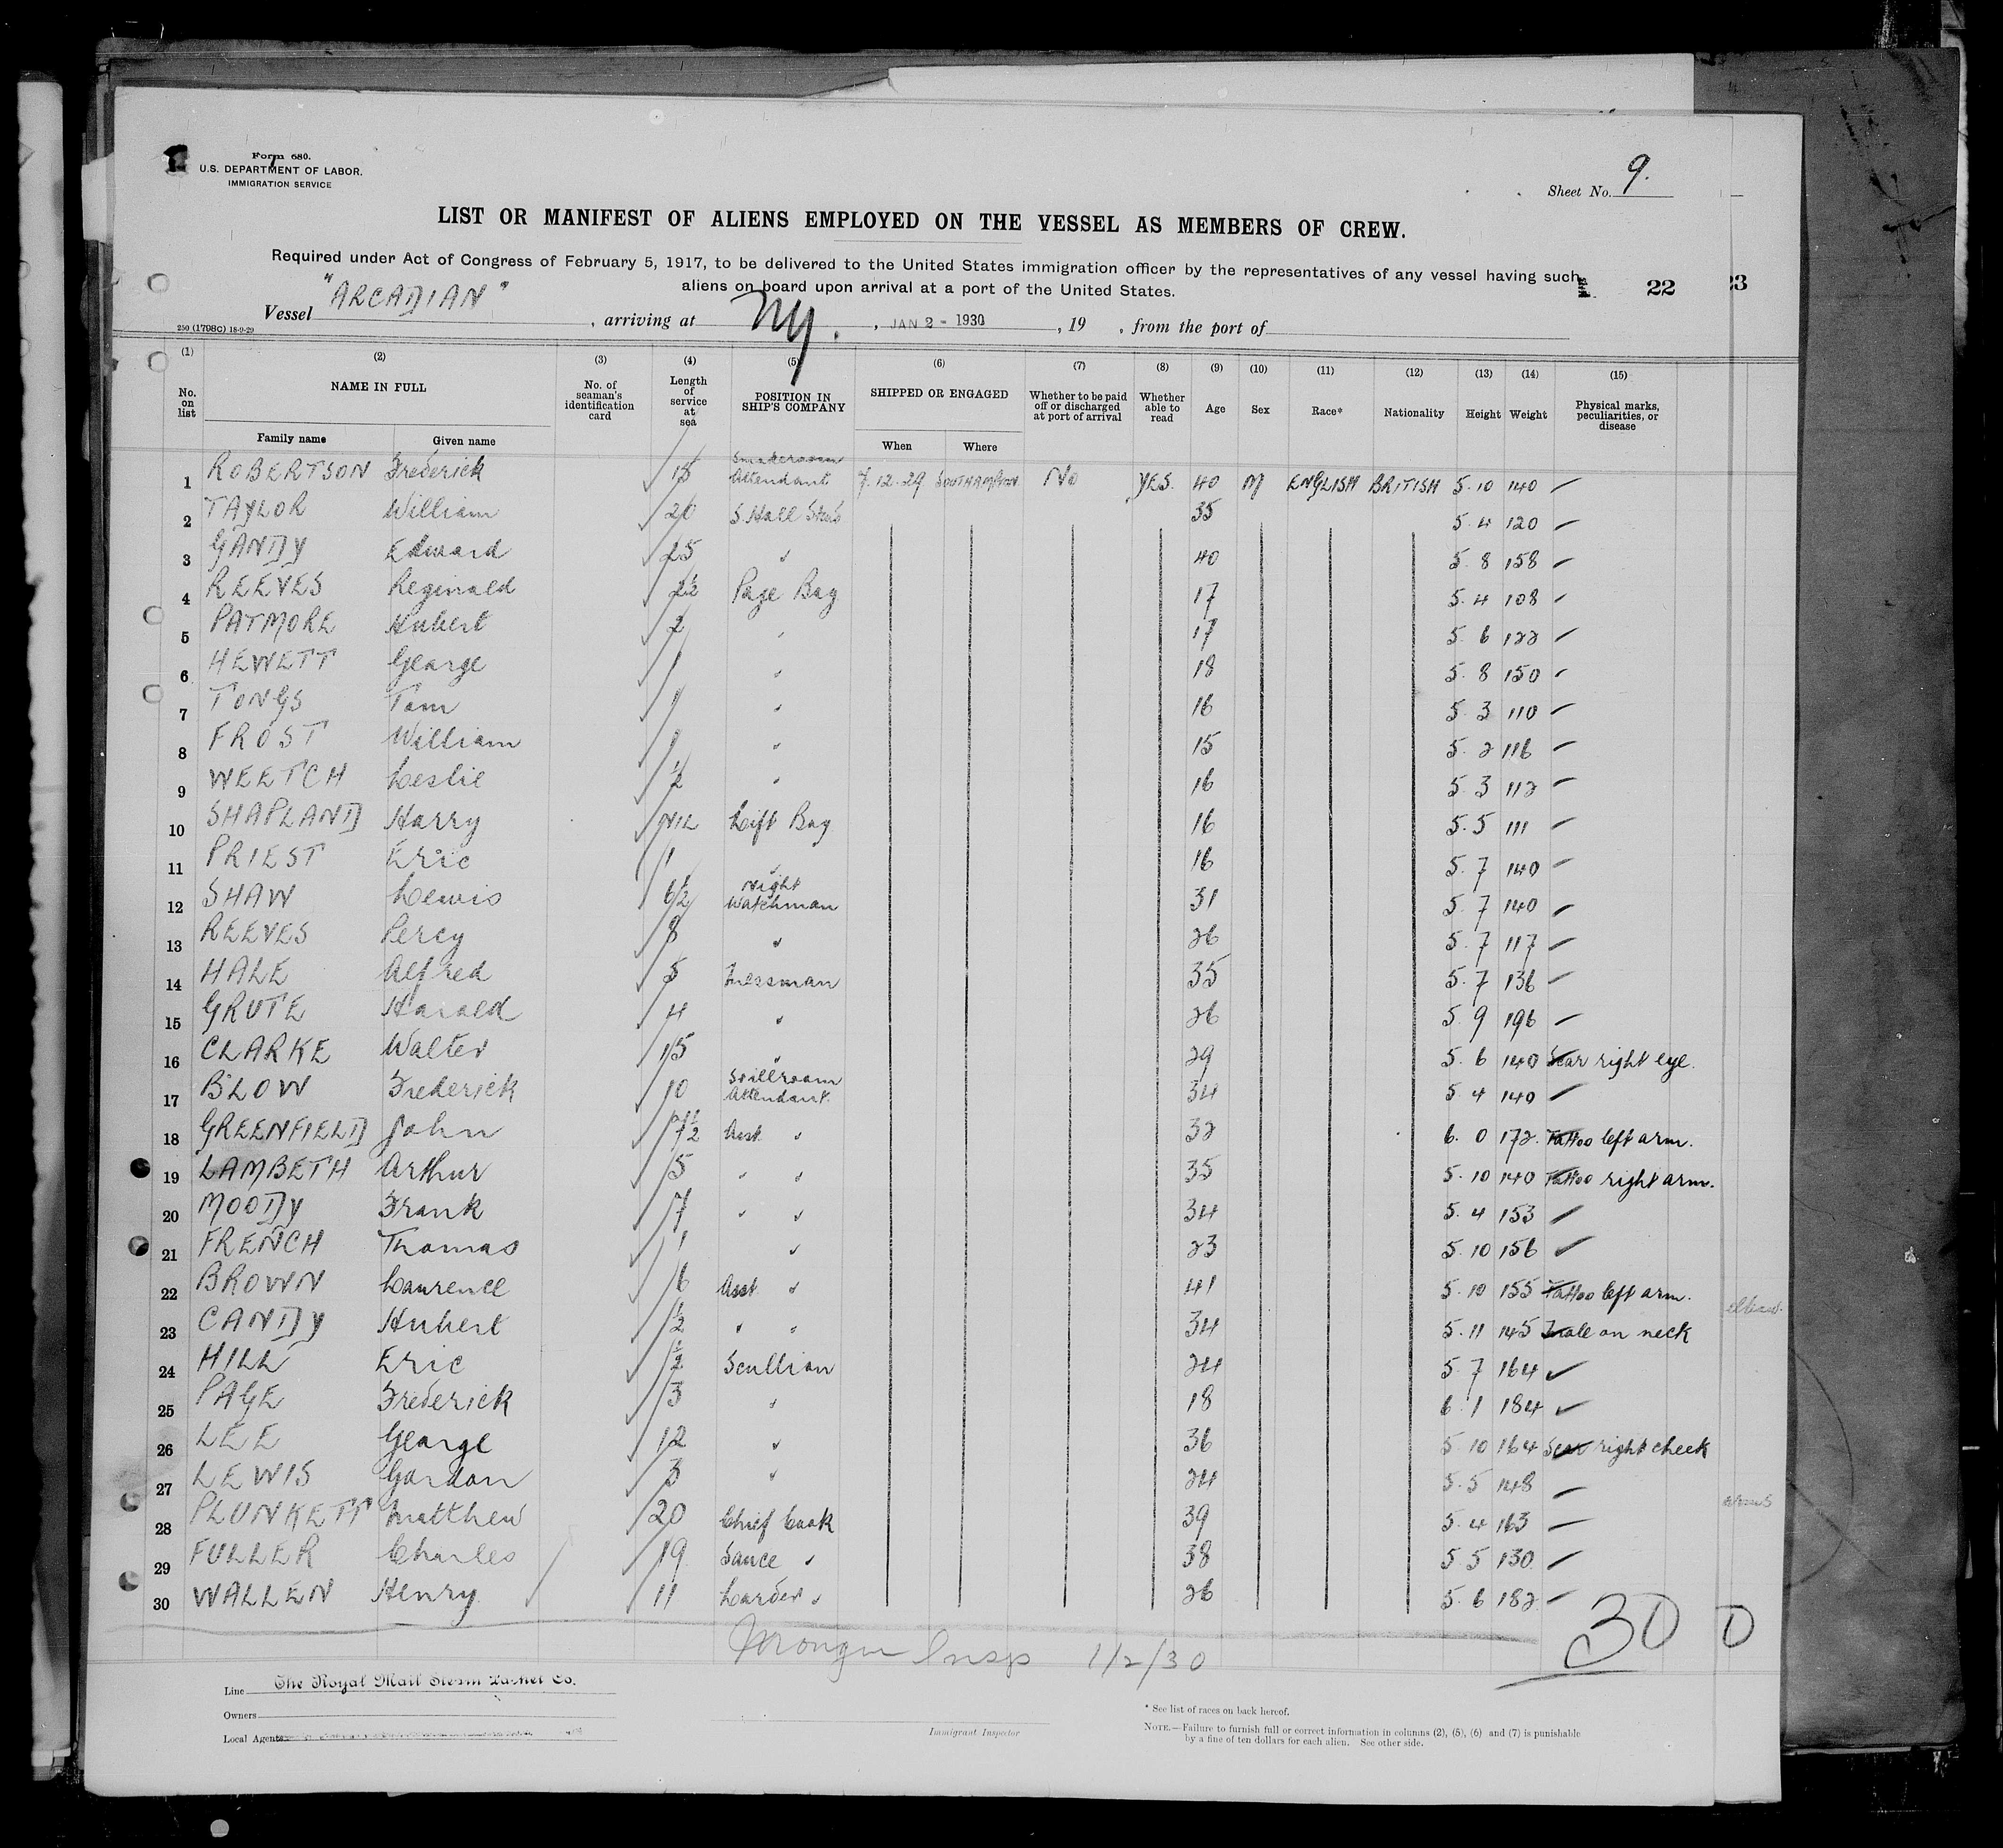 Form 680.
U.S. DEPARTMENT OF LABOR,
IMMIGRATION SERVICE
Sheet No. 9.
LIST OR MANIFEST OF ALIENS EMPLOYED ON THE VESSEL AS MEMBERS OF CREW.
Required under Act of Congress of February 5, 1917, to be delivered to the United States immigration officer by the representatives of any vessel having such
aliens on board upon arrival at a port of the United States.
22 23
Vessel "ARCADIAN", arriving at Ny., JAN 2 - 1930, 19 , from the port of
250 (1798C) 18-9-29
(1) (2) (3) (4) (5) (6) (7) (8) (9) (10) (11) (12) (13) (14) (15)
No. on list NAME IN FULL No. of seaman's identification card Length of service at sea POSITION IN SHIP'S COMPANY SHIPPED OR ENGAGED Whether to be paid off or discharged at port of arrival Whether able to read Age Sex Race* Nationality Height Weight Physical marks, peculiarities, or disease
Family name Given name When Where
1 ROBERTSON Frederick 15 Smokeroom Attendant 7.12.29 SOUTHAMPTON No YES. 40 M ENGLISH BRITISH 5.10 140
2 TAYLOR William 20 S. Hall 35 5.4 120
3 GANDY Edward 25 " 40 5.8 158
4 REEVES Reginald 2½ Page Boy 17 5.4 108
5 PATMORE Hubert 2 " 17 5.6 122
6 HEWETT George 1 " 18 5.8 150
7 TONGS Tom 1 " 16 5.3 110
8 FROST William 1 " 15 5.2 116
9 WEETCH Leslie ½ " 16 5.3 112
10 SHAPLAND Harry NIL Lift Boy 16 5.5 111
11 PRIEST Eric 1 " 16 5.7 140
12 SHAW Lewis 6½ Night Watchman 31 5.7 140
13 REEVES Percy 8 " 26 5.7 117
14 HALE Alfred 5 Messman 35 5.7 136
15 GRUTE Harold 4 " 26 5.9 196
16 CLARKE Walter 15 " 29 5.6 140 Scar right eye.
17 BLOW Frederick 10 Stillroom Attendant. 34 5.4 140
18 GREENFIELD John 7½ Asst. " 32 6.0 172. Tattoo left arm.
19 LAMBETH Arthur 5 " " 35 5.10 140 Tattoo right arm.
20 MOODY Frank 7 " " 34 5.4 153
21 FRENCH Thomas 1 " 23 5.10 156
22 BROWN Laurence 6 Asst " 41 5.10 155 Tattoo left arm.
23 CANDY Hubert ½ " " 34 5.11 145 Mole on neck
24 HILL Eric ½ Scullion 24 5.7 164
25 PAGE Frederick 3 " 18 6.1 184
26 LEE George 12 " 36 5.10 164 Scar right cheek
27 LEWIS Gordon 3 " 24 5.5 148
28 PLUNKETT Matthew 20 Chief Cook 39 5.4 163
29 FULLER Charles 19 Sauce " 38 5.5 130
30 WALLEN Henry. 11 Larder " 26 5.6 182
30 0
Insp 1/2/30
Line The Royal Mail Steam Packet Co.
Owners
Local Agents
Immigrant Inspector
* See list of races on back hereof.
NOTE.—Failure to furnish full or correct information in columns (2), (5), (6) and (7) is punishable
by a fine of ten dollars for each alien. See other side.